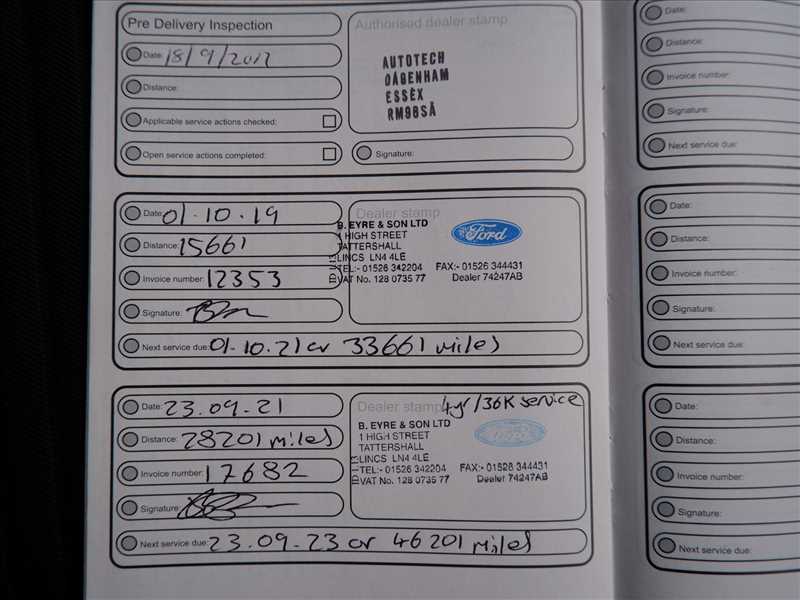 Pre Delivery Inspection
Date: 18/9/2017
Distance:
Applicable service actions checked:
Open service actions completed:
Authorised dealer stamp
AUTOTECH
DAGENHAM
ESSEX
RM98SA
Signature:
Date: 01.10.19
Distance: 15661
Invoice number: 12353
Signature:
Next service due: 01.10.21 or 33661 miles
Dealer stamp
B. EYRE & SON LTD
1 HIGH STREET
TATTERSHALL
LINCS LN4 4LE
TEL:- 01526 342204 FAX:- 01526 344431
VAT No. 128 0735 77 Dealer 74247AB
Ford
Date: 23.09.21
Distance: 28201 miles
Invoice number: 17682
Signature:
Next service due: 23.09.23 or 46201 miles
Dealer stamp 4yr/36K service
B. EYRE & SON LTD
1 HIGH STREET
TATTERSHALL
LINCS LN4 4LE
TEL:- 01526 342204 FAX:- 01526 344431
VAT No. 128 0735 77 Dealer 74247AB
Date:
Distance:
Invoice number:
Signature:
Next service due:
Date:
Distance:
Invoice number:
Signature:
Next service due:
Date:
Distance:
Invoice number:
Signature:
Next service due: